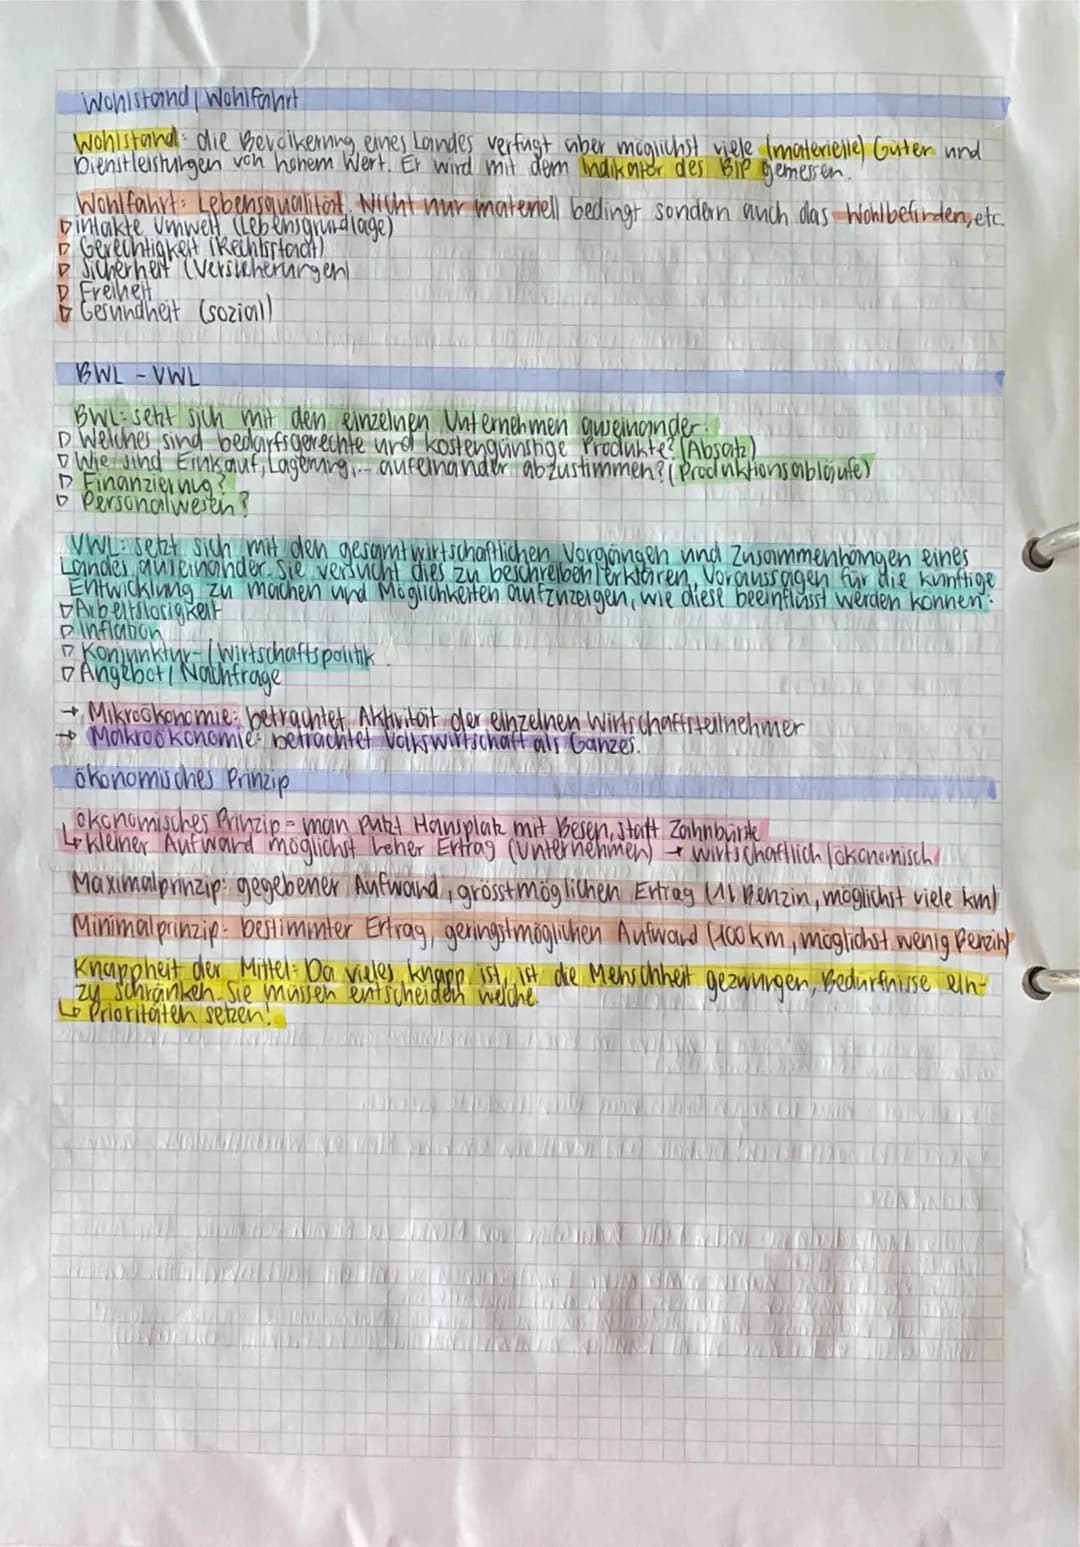 Wohlstand / Wohlfahrt
Wohlstand: die Bevölkerung eines Landes verfügt über möglichst viele (materielle) Güter und
Dienstleistungen von hohem Wert. Er wird mit dem Indikator des BIP gemessen.
Wohlfahrt: Lebensqualität. Nicht nur materiell bedingt sondern auch das Wohlbefinden, etc.
▷ intakte Umwelt (Lebensgrundlage)
▷ Gerechtigkeit (Rechtsstaat)
▷ Sicherheit (Versicherungen)
▷ Freiheit
▷ Gesundheit (sozial)
BWL - VWL
BWL: setzt sich mit den einzelnen Unternehmen auseinander:
▷ Welches sind bedarfsgerechte und kostengünstige Produkte? (Absatz)
▷ Wie sind Einkauf, Lagerung, ... aufeinander abzustimmen? (Produktionsabläufe)
▷ Finanzierung?
▷ Personalwesen?
VWL: setzt sich mit den gesamtwirtschaftlichen Vorgängen und Zusammenhängen eines
Landes auseinander. Sie versucht dies zu beschreiben/erklären, Voraussagen für die künftige
Entwicklung zu machen und Möglichkeiten aufzuzeigen, wie diese beeinflusst werden können:
▷ Arbeitslosigkeit
▷ Inflation
▷ Konjunktur- / Wirtschaftspolitik
▷ Angebot / Nachfrage
→ Mikroökonomie: betrachtet Aktivität der einzelnen Wirtschaftsteilnehmer
→ Makroökonomie: betrachtet Volkswirtschaft als Ganzes.
ökonomisches Prinzip
ökonomisches Prinzip = man putzt Hausplatz mit Besen, statt Zahnbürste
↳ kleiner Aufwand möglichst hoher Ertrag (Unternehmen) → wirtschaftlich / ökonomisch
Maximalprinzip: gegebener Aufwand, grösstmöglichen Ertrag (1L Benzin, möglichst viele km)
Minimalprinzip: bestimmter Ertrag, geringstmöglichen Aufwand (100 km, möglichst wenig Benzin)
Knappheit der Mittel: Da vieles knapp ist, ist die Menschheit gezwungen, Bedürfnisse ein-
zu schränken. Sie müssen entscheiden welche.
↳ Prioritäten setzen!